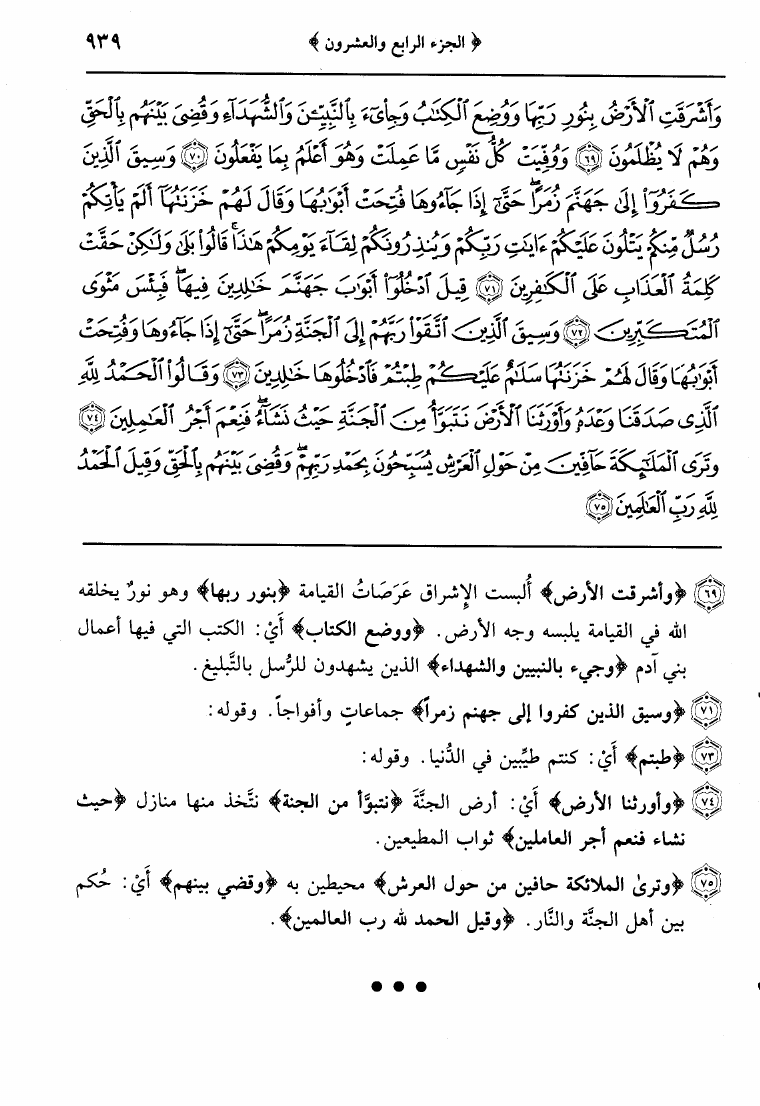 ﴿ الجزء الرابع والعشرون ﴾ ٩٣٩
وَأَشْرَقَتِ ٱلْأَرْضُ بِنُورِ رَبِّهَا وَوُضِعَ ٱلْكِتَٰبُ وَجِا۟ىٓءَ بِٱلنَّبِيِّۦنَ وَٱلشُّهَدَآءِ وَقُضِىَ بَيْنَهُم بِٱلْحَقِّ
وَهُمْ لَا يُظْلَمُونَ ٦٩ وَوُفِّيَتْ كُلُّ نَفْسٍ مَّا عَمِلَتْ وَهُوَ أَعْلَمُ بِمَا يَفْعَلُونَ ٧٠ وَسِيقَ ٱلَّذِينَ
كَفَرُوٓا۟ إِلَىٰ جَهَنَّمَ زُمَرًا ۖ حَتَّىٰٓ إِذَا جَآءُوهَا فُتِحَتْ أَبْوَٰبُهَا وَقَالَ لَهُمْ خَزَنَتُهَآ أَلَمْ يَأْتِكُمْ
رُسُلٌ مِّنكُمْ يَتْلُونَ عَلَيْكُمْ ءَايَٰتِ رَبِّكُمْ وَيُنذِرُونَكُمْ لِقَآءَ يَوْمِكُمْ هَٰذَا ۚ قَالُوا۟ بَلَىٰ وَلَٰكِنْ حَقَّتْ
كَلِمَةُ ٱلْعَذَابِ عَلَى ٱلْكَٰفِرِينَ ٧١ قِيلَ ٱدْخُلُوٓا۟ أَبْوَٰبَ جَهَنَّمَ خَٰلِدِينَ فِيهَا ۖ فَبِئْسَ مَثْوَى
ٱلْمُتَكَبِّرِينَ ٧٢ وَسِيقَ ٱلَّذِينَ ٱتَّقَوْا۟ رَبَّهُمْ إِلَى ٱلْجَنَّةِ زُمَرًا ۖ حَتَّىٰٓ إِذَا جَآءُوهَا وَفُتِحَتْ
أَبْوَٰبُهَا وَقَالَ لَهُمْ خَزَنَتُهَا سَلَٰمٌ عَلَيْكُمْ طِبْتُمْ فَٱدْخُلُوهَا خَٰلِدِينَ ٧٣ وَقَالُوا۟ ٱلْحَمْدُ لِلَّهِ
ٱلَّذِى صَدَقَنَا وَعْدَهُۥ وَأَوْرَثَنَا ٱلْأَرْضَ نَتَبَوَّأُ مِنَ ٱلْجَنَّةِ حَيْثُ نَشَآءُ ۖ فَنِعْمَ أَجْرُ ٱلْعَٰمِلِينَ ٧٤
وَتَرَى ٱلْمَلَٰٓئِكَةَ حَآفِّينَ مِنْ حَوْلِ ٱلْعَرْشِ يُسَبِّحُونَ بِحَمْدِ رَبِّهِمْ ۖ وَقُضِىَ بَيْنَهُم بِٱلْحَقِّ وَقِيلَ ٱلْحَمْدُ
لِلَّهِ رَبِّ ٱلْعَٰلَمِينَ ٧٥
٦٩ ﴿وأشرقت الأرض﴾ أُلبست الإِشراق عَرَصَاتُ القيامة ﴿بنور ربها﴾ وهو نورٌ يخلقه
الله في القيامة يلبسه وجه الأرض. ﴿ووضع الكتاب﴾ أَيْ: الكتب التي فيها أعمال
بني آدم ﴿وجيء بالنبيين والشهداء﴾ الذين يشهدون للرُّسل بالتَّبليغ.
٧١ ﴿وسيق الذين كفروا إلى جهنم زمراً﴾ جماعاتٍ وأفواجاً. وقوله:
٧٣ ﴿طبتم﴾ أَيْ: كنتم طيِّبين في الدُّنيا. وقوله:
٧٤ ﴿وأورثنا الأرض﴾ أَيْ: أرض الجنَّةَ ﴿نتبوَّأ من الجنة﴾ نتَّخذ منها منازل ﴿حيث
نشاء فنعم أجر العاملين﴾ ثواب المطيعين.
٧٥ ﴿وترىٰ الملائكة حافين من حول العرش﴾ محيطين به ﴿وقضي بينهم﴾ أَيْ: حُكم
بين أهل الجنَّة والنَّار. ﴿وقيل الحمد لله رب العالمين﴾.
● ● ●